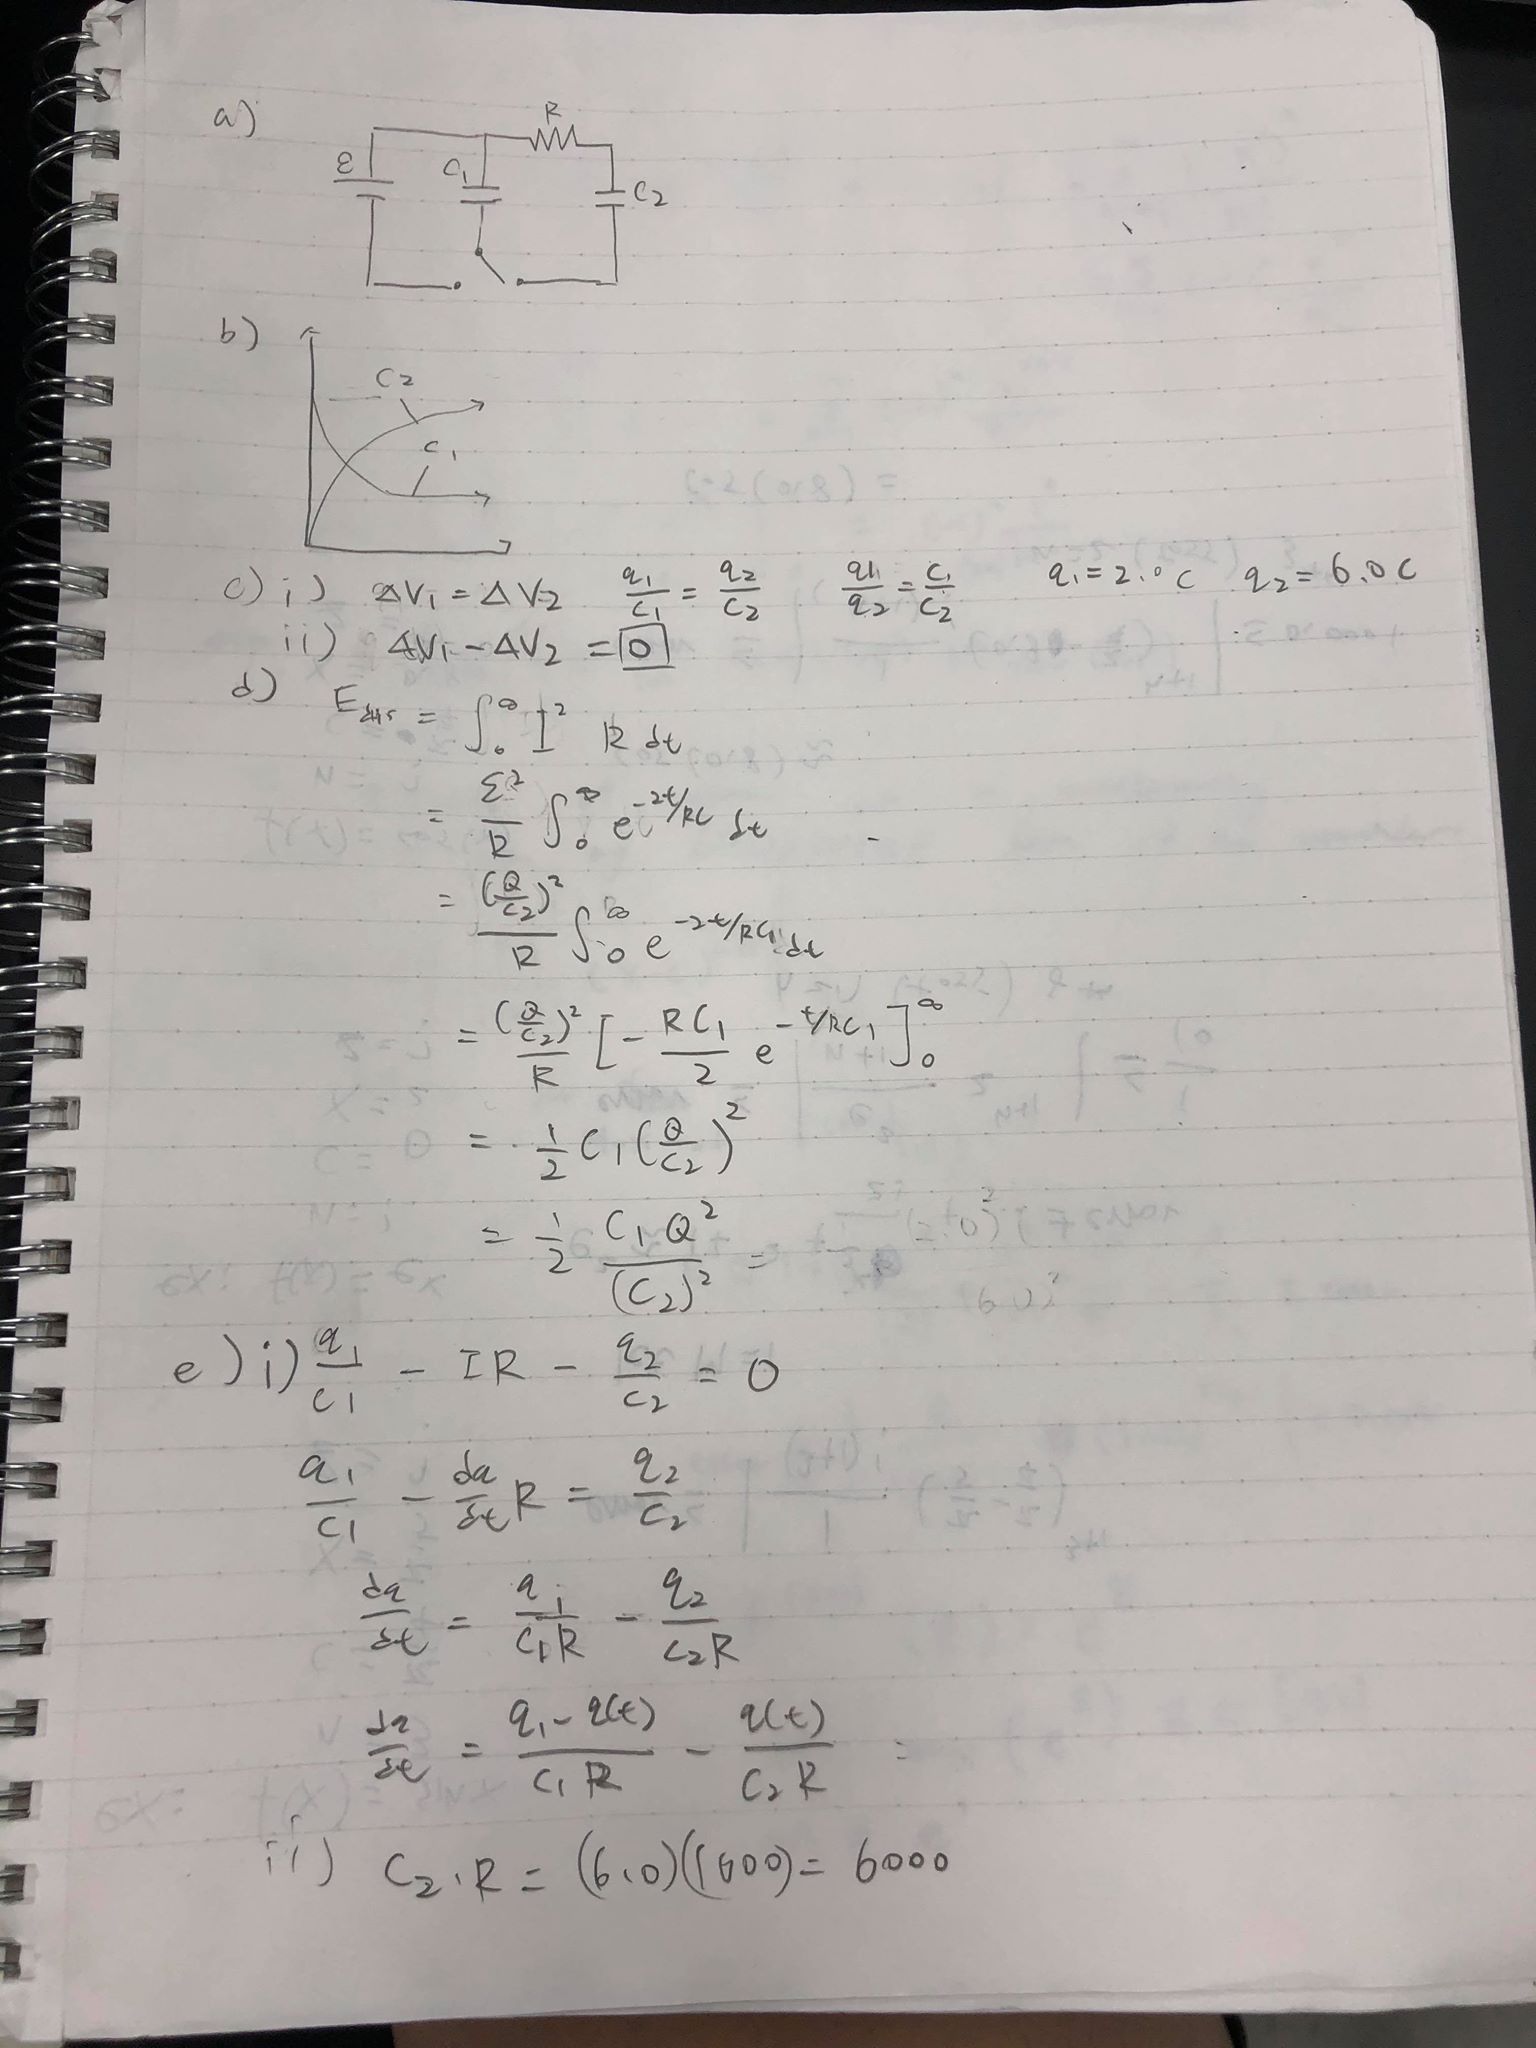 a)
R
ε C₁ C₂
b)
C₂
C₁
c) i) ΔV₁ = ΔV₂ q₁/C₁ = q₂/C₂ q₁/q₂ = C₁/C₂ q₁ = 2.0 C q₂ = 6.0 C
ii) ΔV₁ - ΔV₂ = 0
d) E = ∫₀^∞ I² R dt
= ε²/R ∫₀^∞ e^(-2t/RC) dt
= (Q/C₂)²/R ∫₀^∞ e^(-2t/RC₁) dt
= (Q/C₂)²/R [- RC₁/2 e^(-t/RC₁)]₀^∞
= 1/2 C₁ (Q/C₂)²
= 1/2 C₁Q²/(C₂)² =
e) i) q₁/C₁ - IR - q₂/C₂ = 0
q₁/C₁ - dq/dt R = q₂/C₂
dq/dt = q₁/C₁R - q₂/C₂R
dq/dt = q₁ - q(t)/C₁R - q(t)/C₂R =
ii) C₂ · R = (6.0)(1000) = 6000